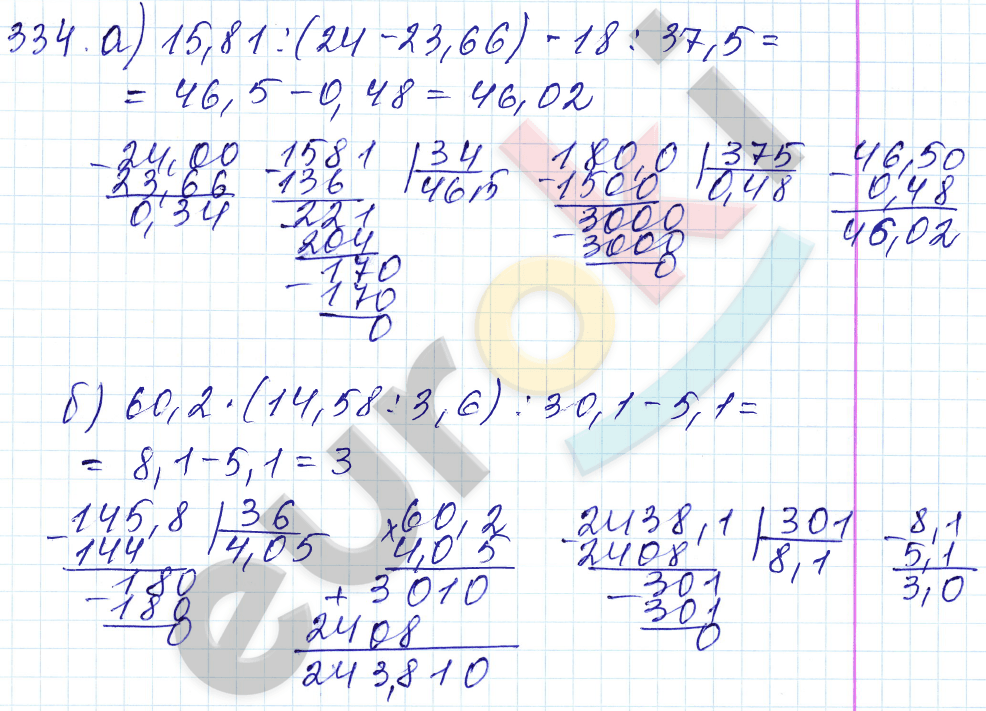 334. а) 15,81 : (24 - 23,66) - 18 : 37,5 =
= 46,5 - 0,48 = 46,02
- 24,00
23,66
0,34
- 1581 | 34
136 46,5
- 221
204
- 170
170
0
- 180,0 | 375
1500 0,48
- 3000
3000
0
- 46,50
0,48
46,02
б) 60,2 · (14,58 : 3,6) : 30,1 - 5,1 =
= 8,1 - 5,1 = 3
- 145,8 | 36
144 4,05
- 180
180
0
× 60,2
4,05
+ 3010
2408
243,810
- 2438,1 | 301
2408 8,1
- 301
301
0
- 8,1
5,1
3,0
euroki